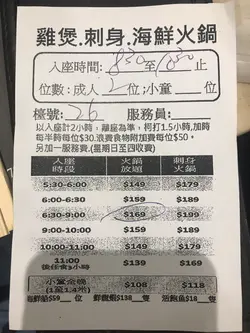 雞煲.刺身.海鮮火鍋
入座時間: 830 至 1030 止
位數:成人 2 位;小童 位
檯號: 26 服務員:
以入座計2小時,離座為準,柯打1.5小時,加時
每半時每位$30.浪費食物附加費每位$50。
另加一服務費.(星期日至四收費)
入座時段 火鍋放題 刺身火鍋
5:30-6:00 $149 $179
6:00-6:30 $159 $189
6:30-9:00 $169 $199
9:00-10:00 $159 $189
10:00-11:00 $149 $179
11:00 $139 $169
小童全晚 $108 $118
$59 隻 $138 隻 $18 隻